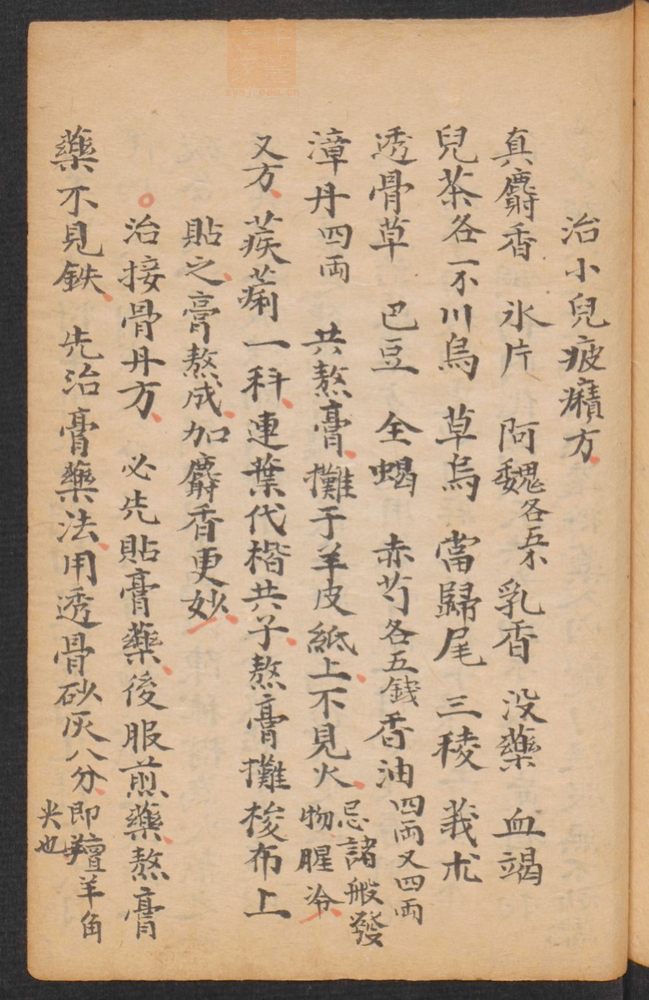 治小兒疲癪方
真麝香 氷片 阿魏各五不 乳香 没藥 血竭
兒茶各一不川烏 草烏 當歸尾 三稜 莪朮
透骨草 巴豆 全蝎 赤芍各五錢香油四兩又四兩
漳丹四兩 共熬膏攤于羊皮紙上不見火忌諸般發物腥冷
又方 蒺藜一科連葉代楷共子熬膏攤梭布上
貼之膏熬成加麝香更妙
治接骨丹方 必先貼膏藥後服煎藥熬膏
藥不見鉄 先治膏藥法用透骨砂灰八分即羶羊角尖也